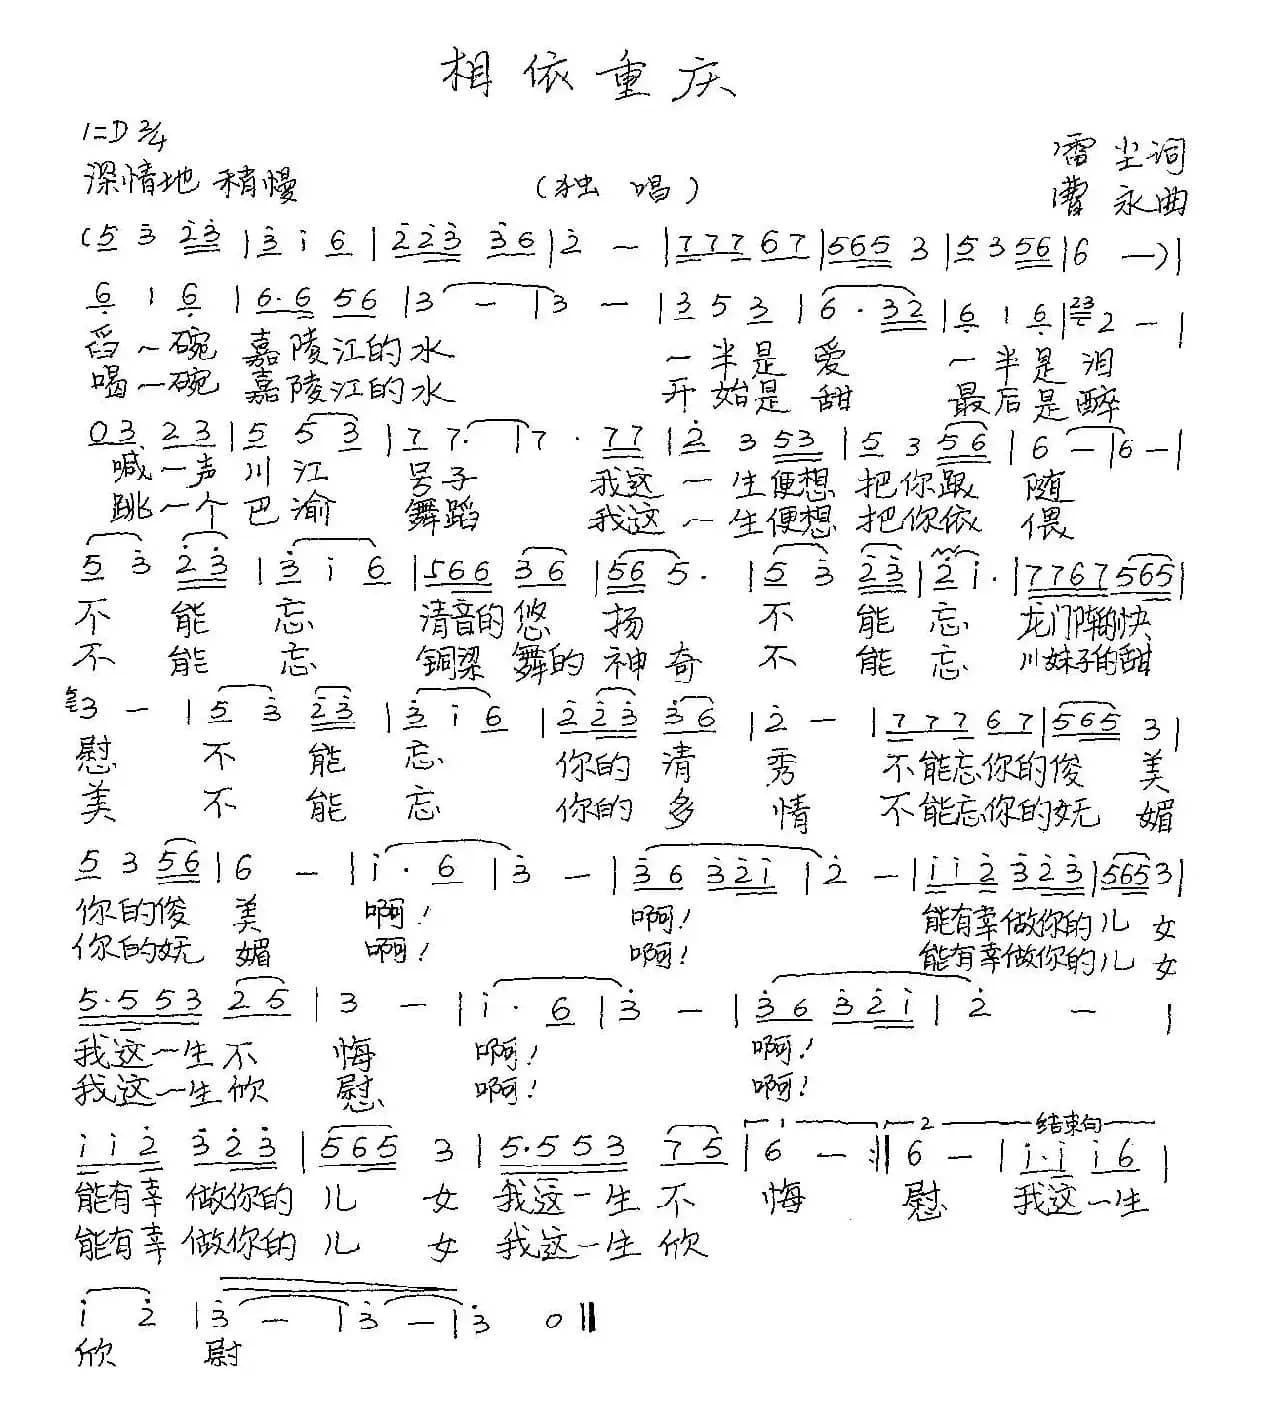 相依重庆
1=D 2/4
雷尘词
深情地 稍慢 (独唱) 曹永曲
(5 3 2 3 | 3 i 6 | 2 2 3 3 6 | 2 - | 7 7 7 6 7 | 5 6 5 3 | 5 3 5 6 | 6 - ) |
6 1 6 | 6· 6 5 6 | 3 - | 3 - | 3 5 3 | 6 · 3 2 | 6 1 6 | 23 2 - |
舀一碗 嘉陵江的水 一半是爱 一半是泪
喝一碗 嘉陵江的水 开始是甜 最后是醉
0 3 2 3 | 5 5 3 | 7 7· | 7 · 7 7 | 2 3 5 3 | 5 3 5 6 | 6 - | 6 - |
喊一声川江 号子 我这一生便想把你跟 随
跳一个巴渝 舞蹈 我这一生便想把你依 偎
5 3 2 3 | 3 i 6 | 5 6 6 3 6 | 5 6 5· | 5 3 2 3 | 2 i· | 7 7 6 7 5 6 5 |
不能忘 清音的悠扬 不能忘 龙门阵的快
不能忘 铜梁舞的神奇 不能忘 川妹子的甜
3 - | 5 3 2 3 | 3 i 6 | 2 2 3 3 6 | 2 - | 7 7 7 6 7 | 5 6 5 3 |
慰 不能忘 你的清秀 不能忘你的俊美
美 不能忘 你的多情 不能忘你的妩媚
5 3 5 6 | 6 - | i · 6 | 3 - | 3 6 3 2 i | 2 - | i i 2 3 2 3 | 5 6 5 3 |
你的俊美 啊! 啊! 能有幸做你的儿女
你的妩媚 啊! 啊! 能有幸做你的儿女
5· 5 5 3 2 5 | 3 - | i · 6 | 3 - | 3 6 3 2 i | 2 - |
我这一生不悔 啊! 啊!
我这一生欣慰 啊! 啊!
1 2 结束句
i i 2 3 2 3 | 5 6 5 3 | 5· 5 5 3 7 5 | 6 - :‖ 6 - | i· i i 6 |
能有幸做你的儿女 我这一生不悔 慰 我这一生
能有幸做你的儿女 我这一生欣
i 2 | 3 - | 3 - | 3 0 ‖
欣慰